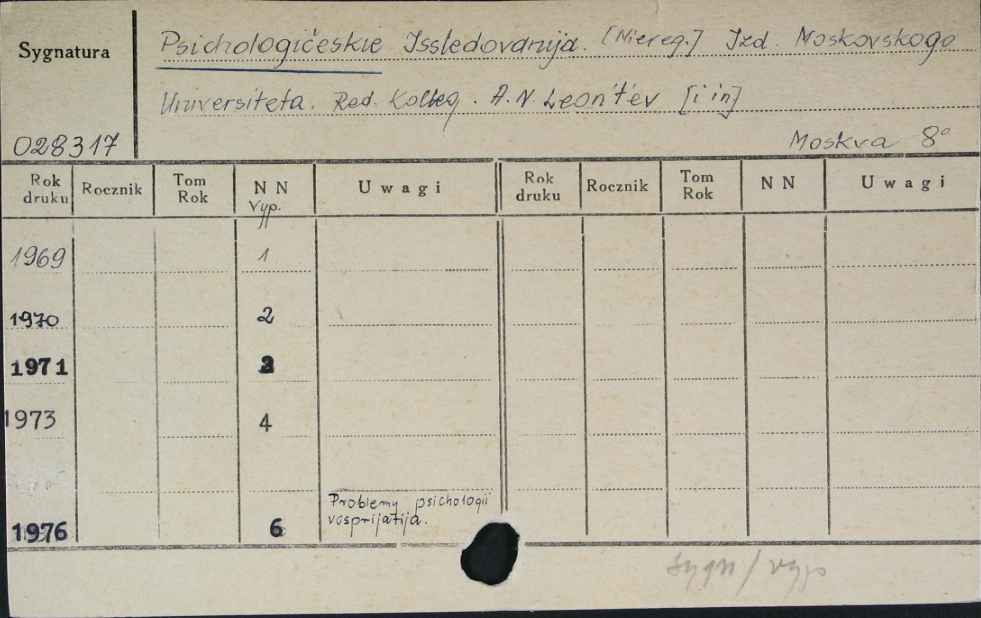 Sygnatura
Psichologičeskie Issledovanija. [Niereg.] Izd. Moskovskogo
Universiteta. Red. Kolleg. A. N. Leont'ev [i in]
028317
Moskva 8°
Rok druku Rocznik Tom Rok NN Uwagi Rok druku Rocznik Tom Rok NN Uwagi
Vyp.
1969 1
1970 2
1971 3
1973 4
Problemy psichologii
vosprijatija.
1976 6
sygn/vyp